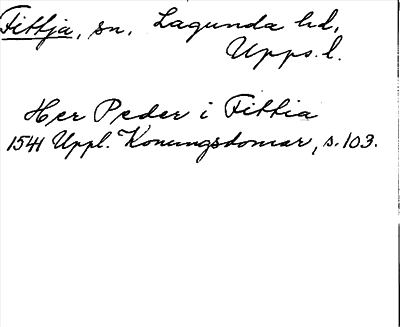 Fittja, sn, Lagunda hd,
Upps. l.
Her Peder i Fittia
1541 Uppl. Konungsdomar, s. 103.